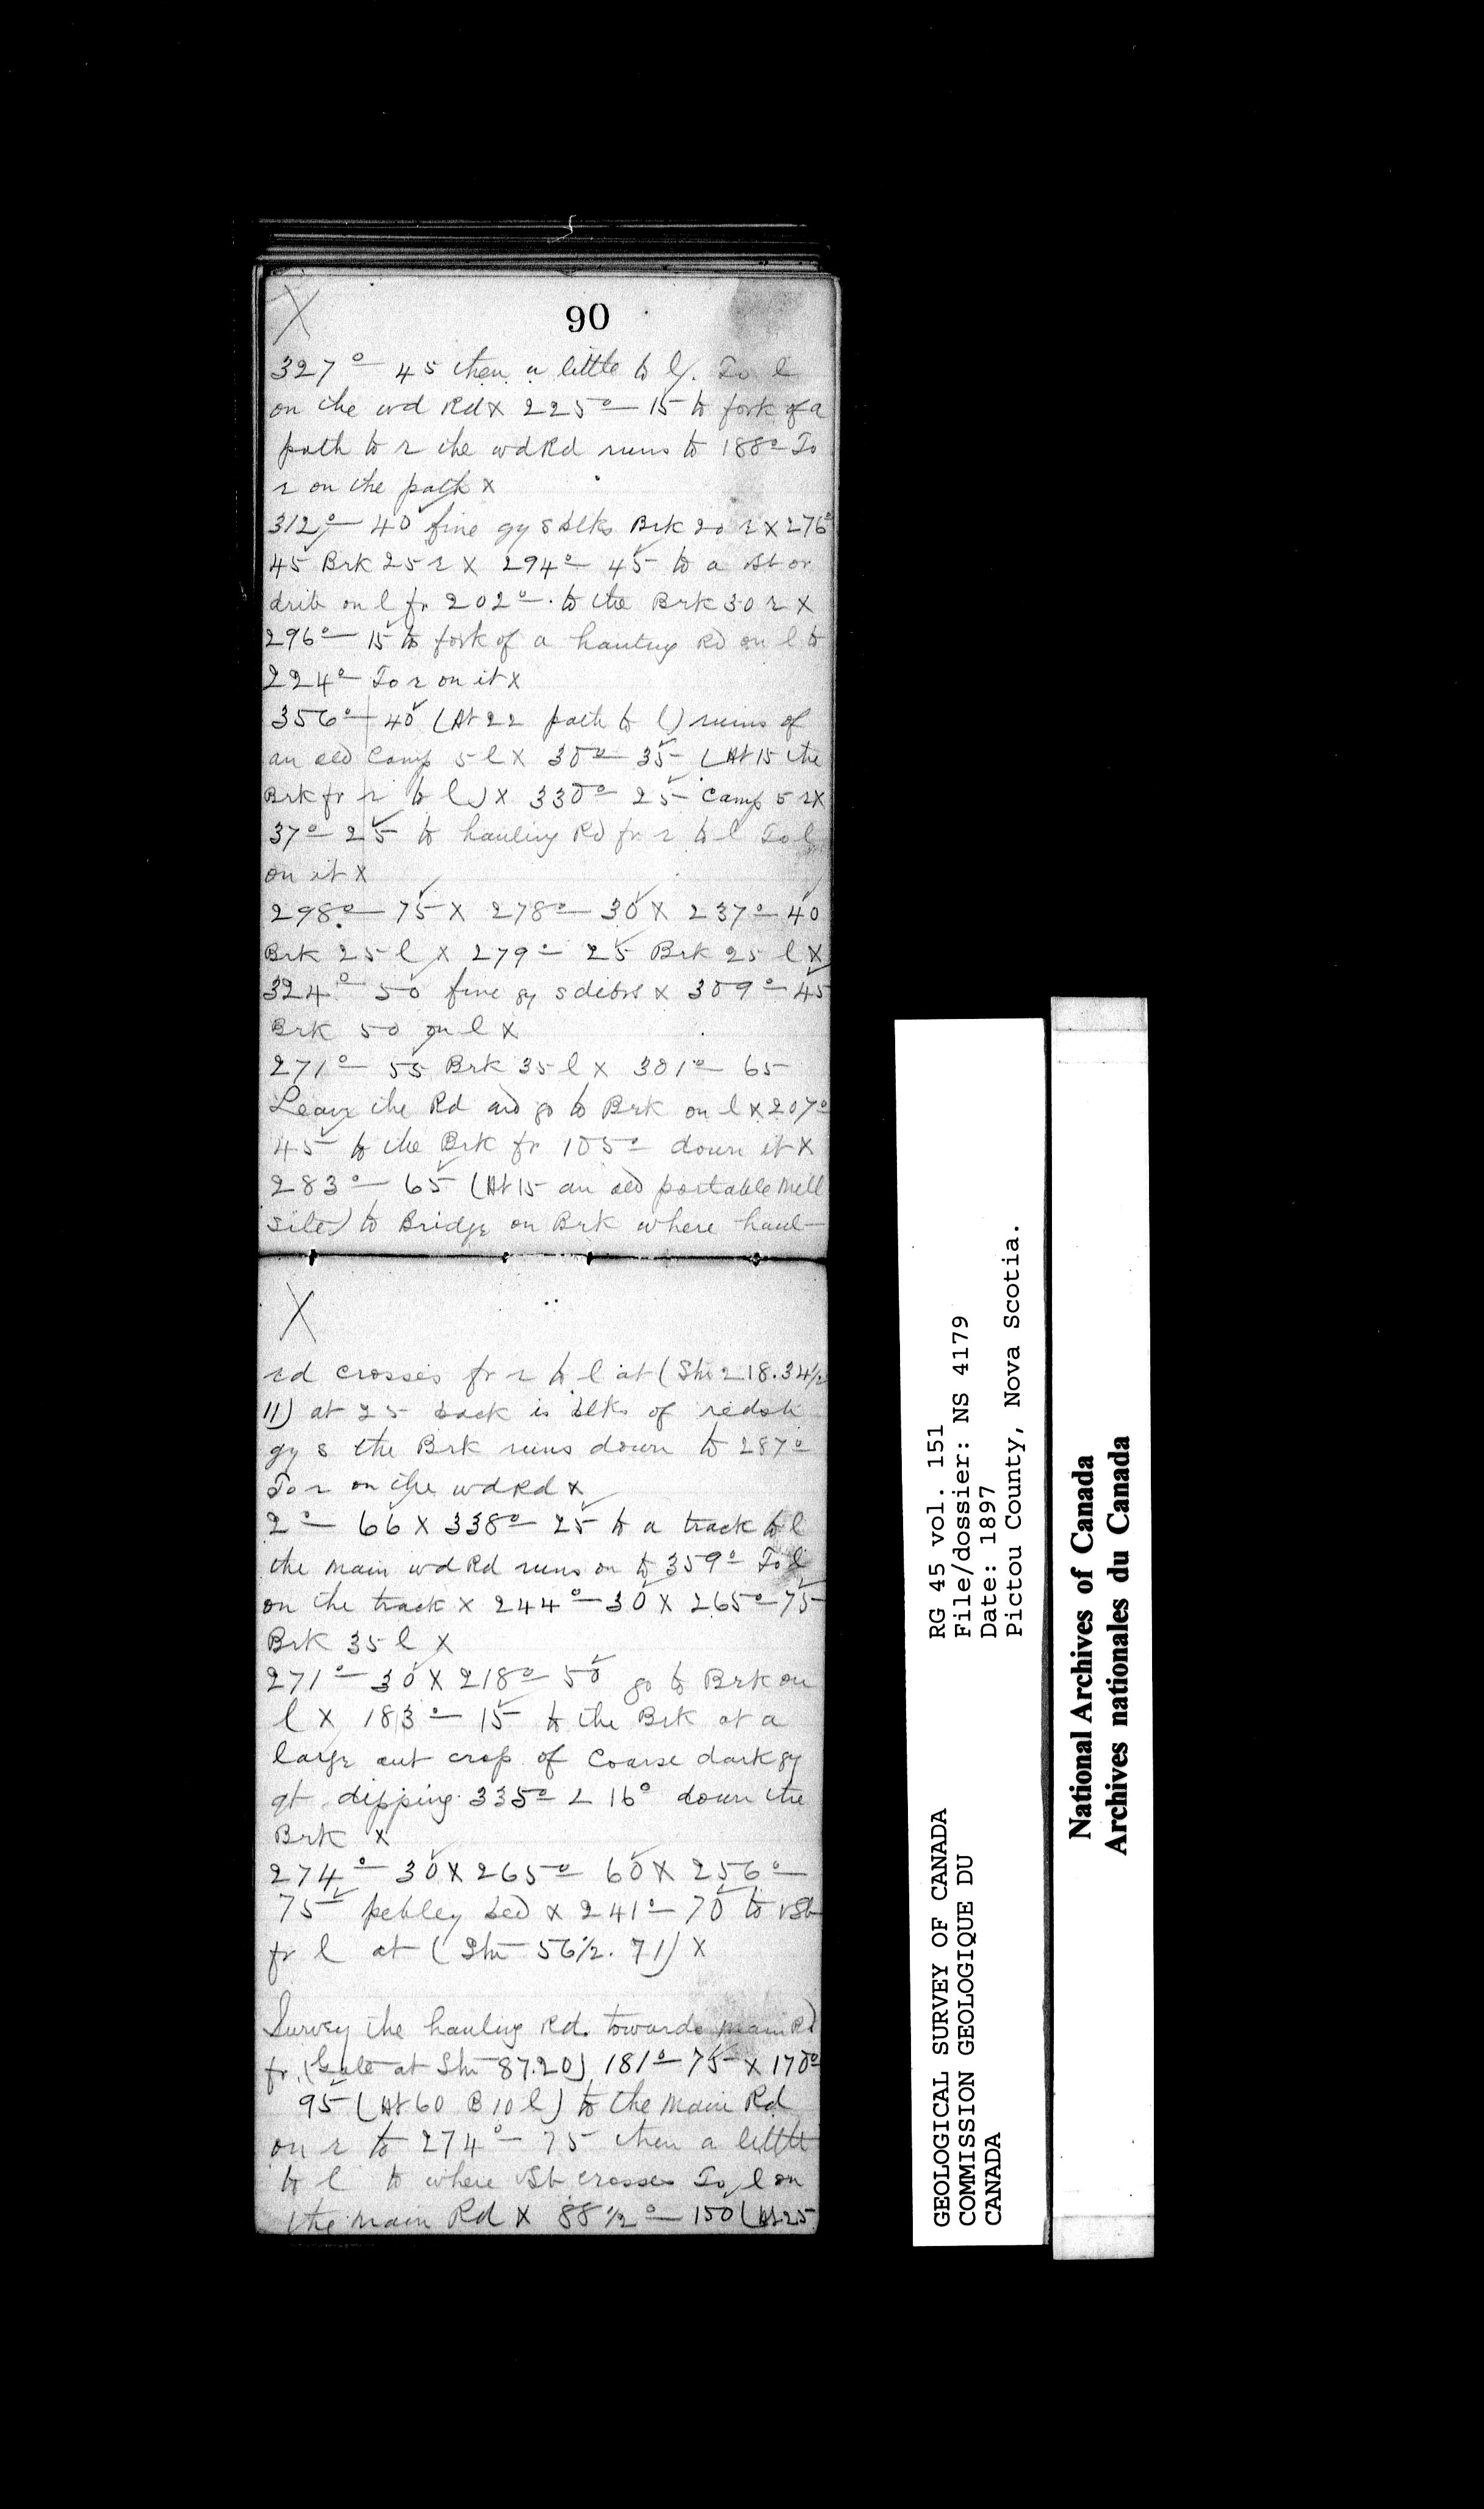 X
90
327° — 45 then a little to l. To l
on the wd Rd X 225° — 15 to fork of a
path to r the wd Rd runs to 188° To
r on the path X
312° — 40 fine gy s blks Brk 20 r X 276°
45 Brk 25 r X 294° — 45 to a vSt or
drib on l fr 202° to the Brk 30 r X
296° — 15 to fork of a hauling Rd on l to
224° To r on it X
356° — 40 (At 22 path to l) ruins of
an old Camp 5 l X 30° — 35 (At 15 the
Brk fr r to l) X 330° — 25 Camp 5 r X
37° — 25 to hauling Rd fr r to l To l
on it X
298° — 75 X 278° — 30 X 237° — 40
Brk 25 l X 279° — 25 Brk 25 l X
324° — 50 fine gy s debrs X 309° — 45
Brk 50 on l X
271° — 55 Brk 35 l X 301° — 65
Leave the Rd and go to Brk on l X 207°
45 to the Brk fr 105° down it X
283° — 65 (At 15 an old portable Mill
site) to Bridge on Brk where haul—
X
rd crosses fr r to l at (Stn 218.34½
11) at 25 back is blks of redsh
gy s the Brk runs down to 287°
To r on the wd Rd X
2° — 66 X 338° — 25 to a track to l
the main wd Rd runs on to 359° To l
on the track X 244° — 30 X 265° — 75
Brk 35 l X
271° — 30 X 218° — 50 go to Brk on
l X 183° — 15 to the Brk at a
large out crop of Coarse dark gy
gt dipping 335° L 16° down the
Brk X
274° — 30 X 265° 60 X 256° —
75 pebley bed X 241° — 70 to vSt
fr l at (Stn 56½. 71) X
Survey the hauling Rd. towards main Rd
fr (Gate at Stn 87.20) 181° — 75 X 170°
95 (At 60 B 10 l) to the Main Rd
on r to 274° — 75 then a little
to l to where vSt crosses To l on
the main Rd X 88½° — 150 (At 25
GEOLOGICAL SURVEY OF CANADA
COMMISSION GEOLOGIQUE DU
CANADA
RG 45 vol. 151
File/dossier: NS 4179
Date: 1897
Pictou County, Nova Scotia.
National Archives of Canada
Archives nationales du Canada